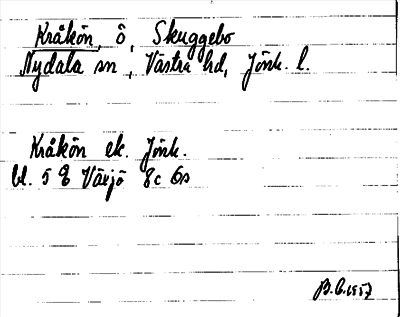 Kråkön, ö, Skuggebo
Nydala sn, Västra hd, Jönk. l.
Kråkön ek. Jönk.
bl. 5 E Växjö 8c 6s
B.E. 1957